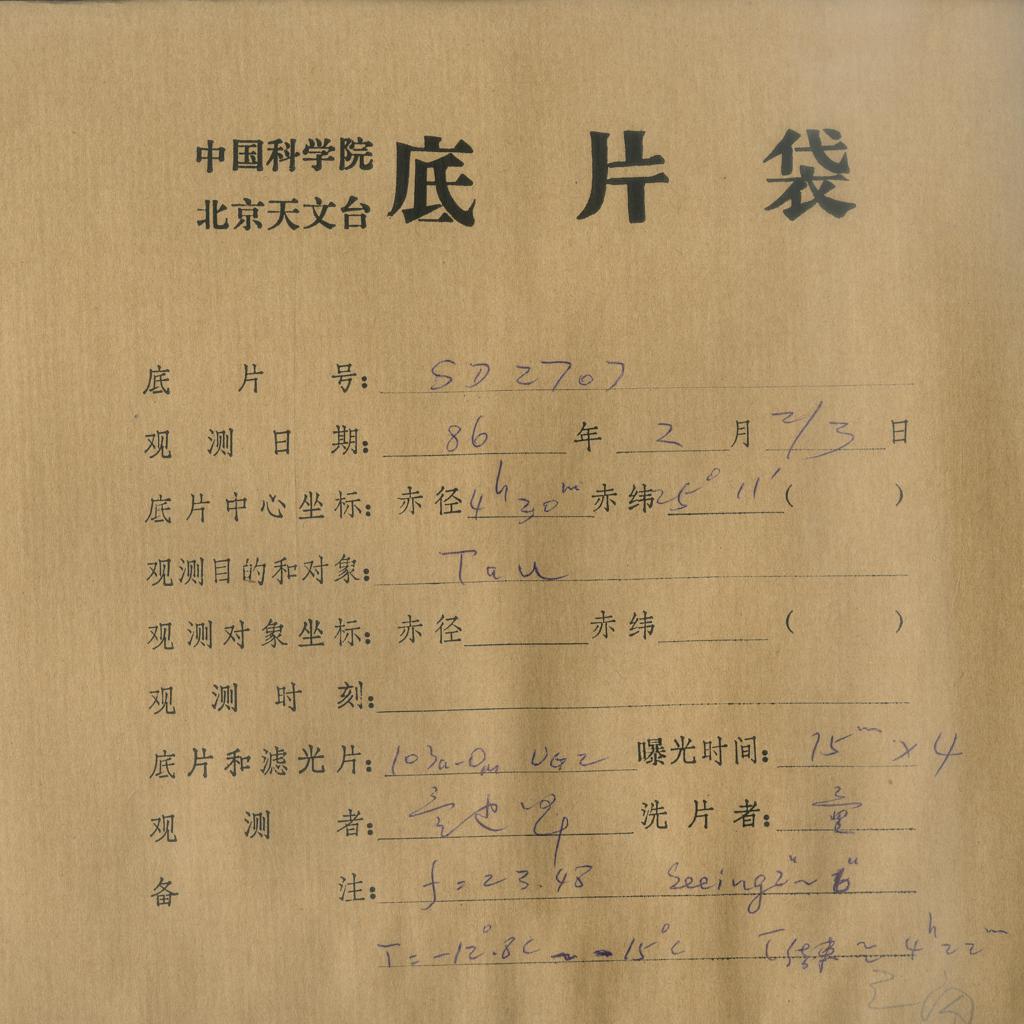 中国科学院
北京天文台
底片袋
底片号: SD2707
观测日期: 86年2月2/3日
底片中心坐标: 赤径4h30m赤纬25°11′( )
观测目的和对象: Tau
观测对象坐标: 赤径 赤纬 ( )
观测时刻:
底片和滤光片: 103a-O UG2 曝光时间: 15m×4
观测者: 洗片者:
备注: f=23.48 Seeing2"~6"
T=-12°.8C~-15°C T结束≈4h22m